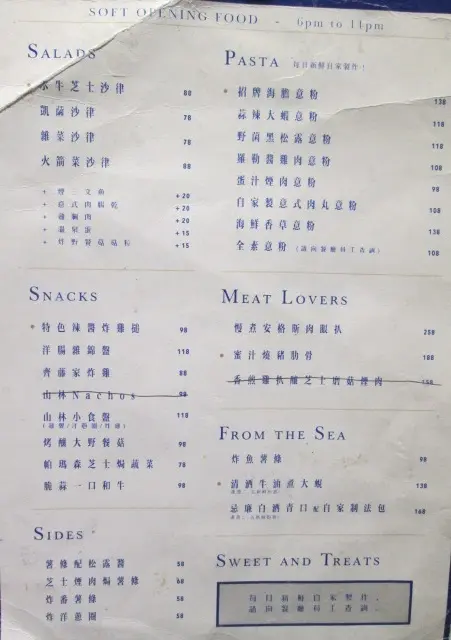 SOFT OPENING FOOD - 6pm to 11pm
SALADS
水牛芝士沙律 88
凱薩沙律 78
雜菜沙律 78
火箭菜沙律 88
+ 煙三文魚 +20
+ 意式肉腸乾 +20
+ 雞胸肉 +20
+ 溫泉蛋 +15
+ 炸野醫菇菇粒 +15
SNACKS
特色辣醬炸雞槌 98
洋腸雜錦盤 118
齊藤家炸雞 88
山林Nachos 98
山林小食盤 118
烤釀大野餐菇 98
帕瑪森芝士焗蔬菜 78
脆蒜一口和牛 98
SIDES
薯條配松露醬 58
芝士煙肉焗薯條 68
炸番薯條 58
炸洋蔥圈 58
PASTA 每日新鮮自家製作!
招牌海膽意粉 138
蒜辣大蝦意粉 118
野菌黑松露意粉 118
羅勒醬雞肉意粉 108
蛋汁煙肉意粉 98
自家製意式肉丸意粉 108
海鮮香草意粉 138
全素意粉 (請向餐廳員工查詢) 108
MEAT LOVERS
慢煮安格斯肉眼扒 258
蜜汁燒豬肋骨 188
香煎雞扒釀芝士磨菇煙肉 158
FROM THE SEA
炸魚薯條 98
清酒牛油煮大蜆 138
忌廉白酒青口配自家製法包 168
SWEET AND TREATS
每日新鮮自家製作,
請向餐廳員工查詢.